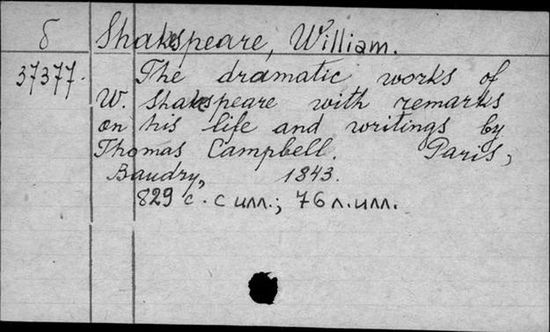 б Shakespeare, William.
37377. The dramatic works of
W. Shakespeare with remarks
on his life and writings by
Thomas Campbell. Paris,
Baudry, 1843.
829 с. с илл.; 76 л. илл.